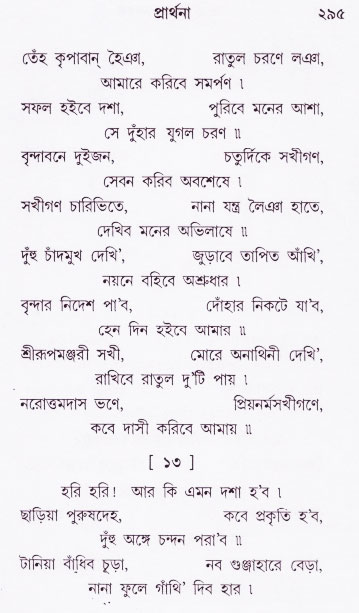 প্রার্থনা ২৯৫
তেঁহ কৃপাবান্ হৈঞা, রাতুল চরণে লঞা,
আমারে করিবে সমর্পণ ৷
সফল হইবে দশা, পুরিবে মনের আশা,
সে দুঁহার যুগল চরণ ॥
বৃন্দাবনে দুইজন, চতুর্দিকে সখীগণ,
সেবন করিব অবশেষে ৷
সখীগণ চারিভিতে, নানা যন্ত্র লৈঞা হাতে,
দেখিব মনের অভিলাষে ॥
দুঁহু চাঁদমুখ দেখি', জুড়াবে তাপিত আঁখি',
নয়নে বহিবে অশ্রুধার ৷
বৃন্দার নিদেশ পা'ব, দোঁহার নিকটে যা'ব,
হেন দিন হইবে আমার ॥
শ্রীরূপমঞ্জরী সখী, মোরে অনাথিনী দেখি',
রাখিবে রাতুল দু'টি পায় ৷
নরোত্তমদাস ভণে, প্রিয়নর্মসখীগণে,
কবে দাসী করিবে আমায় ॥
[ ১৩ ]
হরি হরি! আর কি এমন দশা হ'ব ৷
ছাড়িয়া পুরুষদেহ, কবে প্রকৃতি হ'ব,
দুঁহু অঙ্গে চন্দন পরা'ব ॥
টানিয়া বাঁধিব চূড়া, নব গুঞ্জাহারে বেড়া,
নানা ফুলে গাঁথি' দিব হার ৷